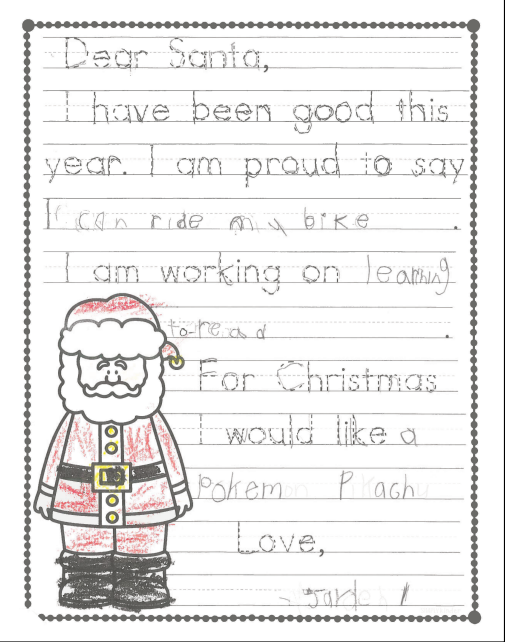 Dear Santa,
I have been good this
year. I am proud to say
I can ride my bike .
I am working on learning
to read .
For Christmas
I would like a
Pokemon Pikachu
Love,
Jarden